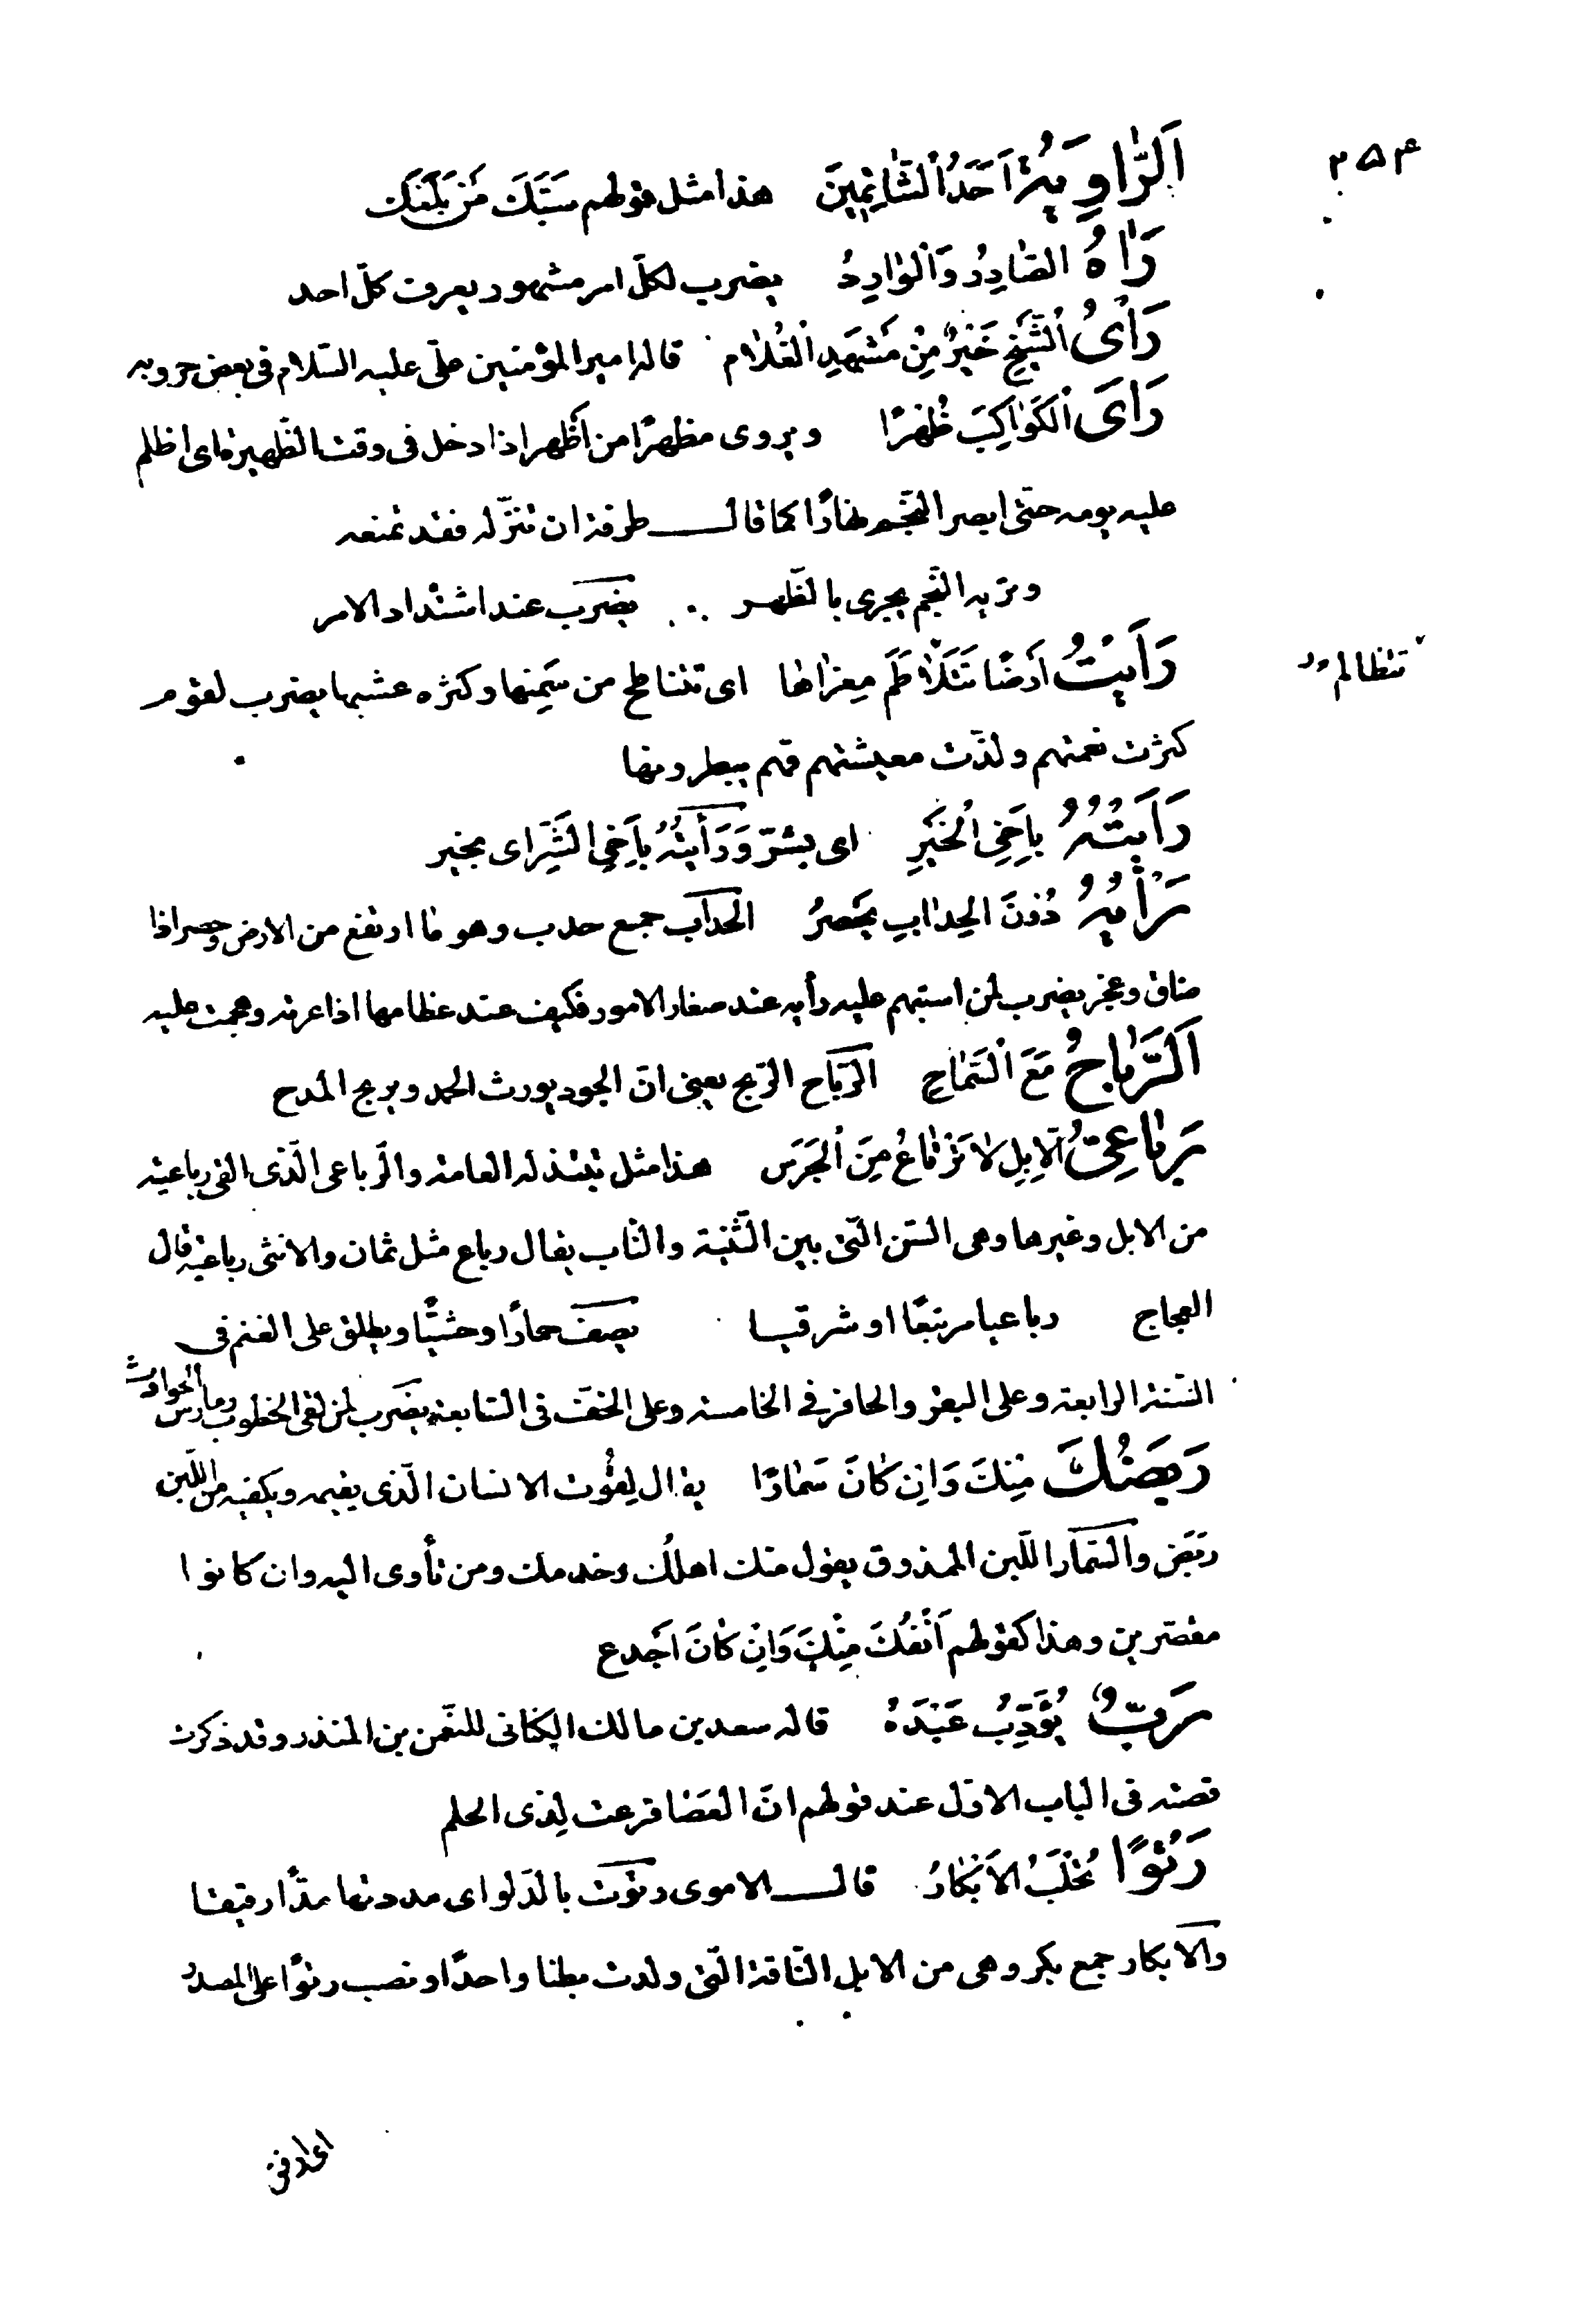 ٢٥٤
اَلرّٰاوِيَةُ اَحَدُ الْشّٰاتِمَينِ هذا مثل قولهم سَبَّكَ مَنْ بَلَّغَكَ
رَاٰهُ الصّٰادِرُ وَالْوٰارِدُ يضرب لكلّ امر مشهور يعرفه كلّ احد
رَأْىُ الْشَّيْخِ خَيْرٌ مِنْ مَشْهَدِ الْغُلٰامِ قاله امير المؤمنين علىّ عليه السّلام فى بعض حروبه
رَاَى الْكَوٰاكِبَ ظُهْرًا ويروى مظهرًا من اَظْهر اذا دخل فى وقت الظّهيرة اى اظلم
عليه يومه حتّى ابصر النّجم نهارًا كما قال طرفة ان تنوّله فقد تمنعه
وتريه النّجم يجرى بالظّهر ∴ يضرب عند اشتداد الامر
رَاَيْتُ اَرْضًا تَتَلاٰطَمُ مِعْزٰاهٰا اى تتناطح من سِمَنِها وكثره عشبها يضرب لقوم
تتظالم
كثرت نعمتهم ولذّت معيشتهم فهم يبطرونها
رَاَيْتُهُ بِاَخِى الْخَيْرِ اى بشرّ وَرَأَيْتُهُ بِاَخِى الشَّرِّ اى بخير
رَأْيُهُ دُوْنَ الحِدٰابِ يَحْصَرُ الحداب جمع حدب وهو ما ارتفع من الارض وحصر اذا
ضاق وعجز يضرب لمن استبهم عليه رأيه عند صغار الامور فكيف عند عظامها اذا عرته وهجمت عليه
اَلرَّبٰاحُ مَعَ الْسَّمٰاحِ الرّباح الرّبح يعنى انّ الجود يورث الحمد ويربح المدح
رَبٰاعِىُّ الْاِبِلِ لاٰ يَرْتٰاعُ مِنَ الْجَرَسِ هذا مثل تبتذله العامة والرّباعى الّذى القى رباعيته
من الابل وغيرها وهى السّن الّتى بين الثّنيّة والنّاب يقال رباع مثل ثمان والانثى رباعية قال
العجاج رباعيا مرتبعًا او شرقبا يصف حمارًا وحشيًّا ويطلق على الغنم فى
السّنة الرابعة وعلى البقر والحافر فى الخامسة وعلى الخفّ فى السّابعة يضرب لمن لقى الخطوب ومارس الحوادث
رَبَضُكَ مِنْكَ وَاِنْ كٰانَ سَمٰارًا يقال لِقُوْت الانسان الّذى يقيمه ويكفيه من اللّبن
ربَض والسّمار اللّبن الممذوق يقول منك اهلُك وخدمك ومن تأوى اليه وان كانوا
مقصّرين وهذا كقولهم اَنْفُكَ مِنْكَ وَاِنْ كٰانَ اَجْدع
رَبٌّ يُؤَدِّبُ عَبْدَهُ قاله سعد بن مالك الكنانى للنعّمن بن المنذر وقد ذكرت
قصته فى الباب الاوّل عند قولهم انّ العَصَا قرعت لِذى الحلم
رَتْوًا تُحْلَبُ الاَبْكٰارُ قال الاموى رتوت بالدّلو اى مددتها مدًّا رقيقا
والابكار جمع بكر وهى من الابل النّاقة الّتى ولدت بطنا واحدًا ونصب رتوًا على المصدر